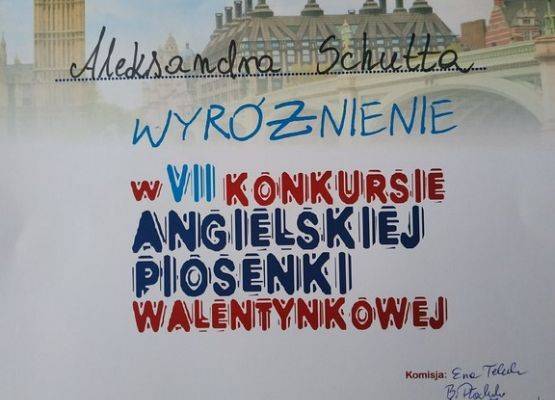 Aleksandra Schulta
WYRÓŻNIENIE
W VII KONKURSIE
ANGIELSKIEJ
PIOSENKI
WALENTYNKOWEJ
Komisja: Ewa
B.